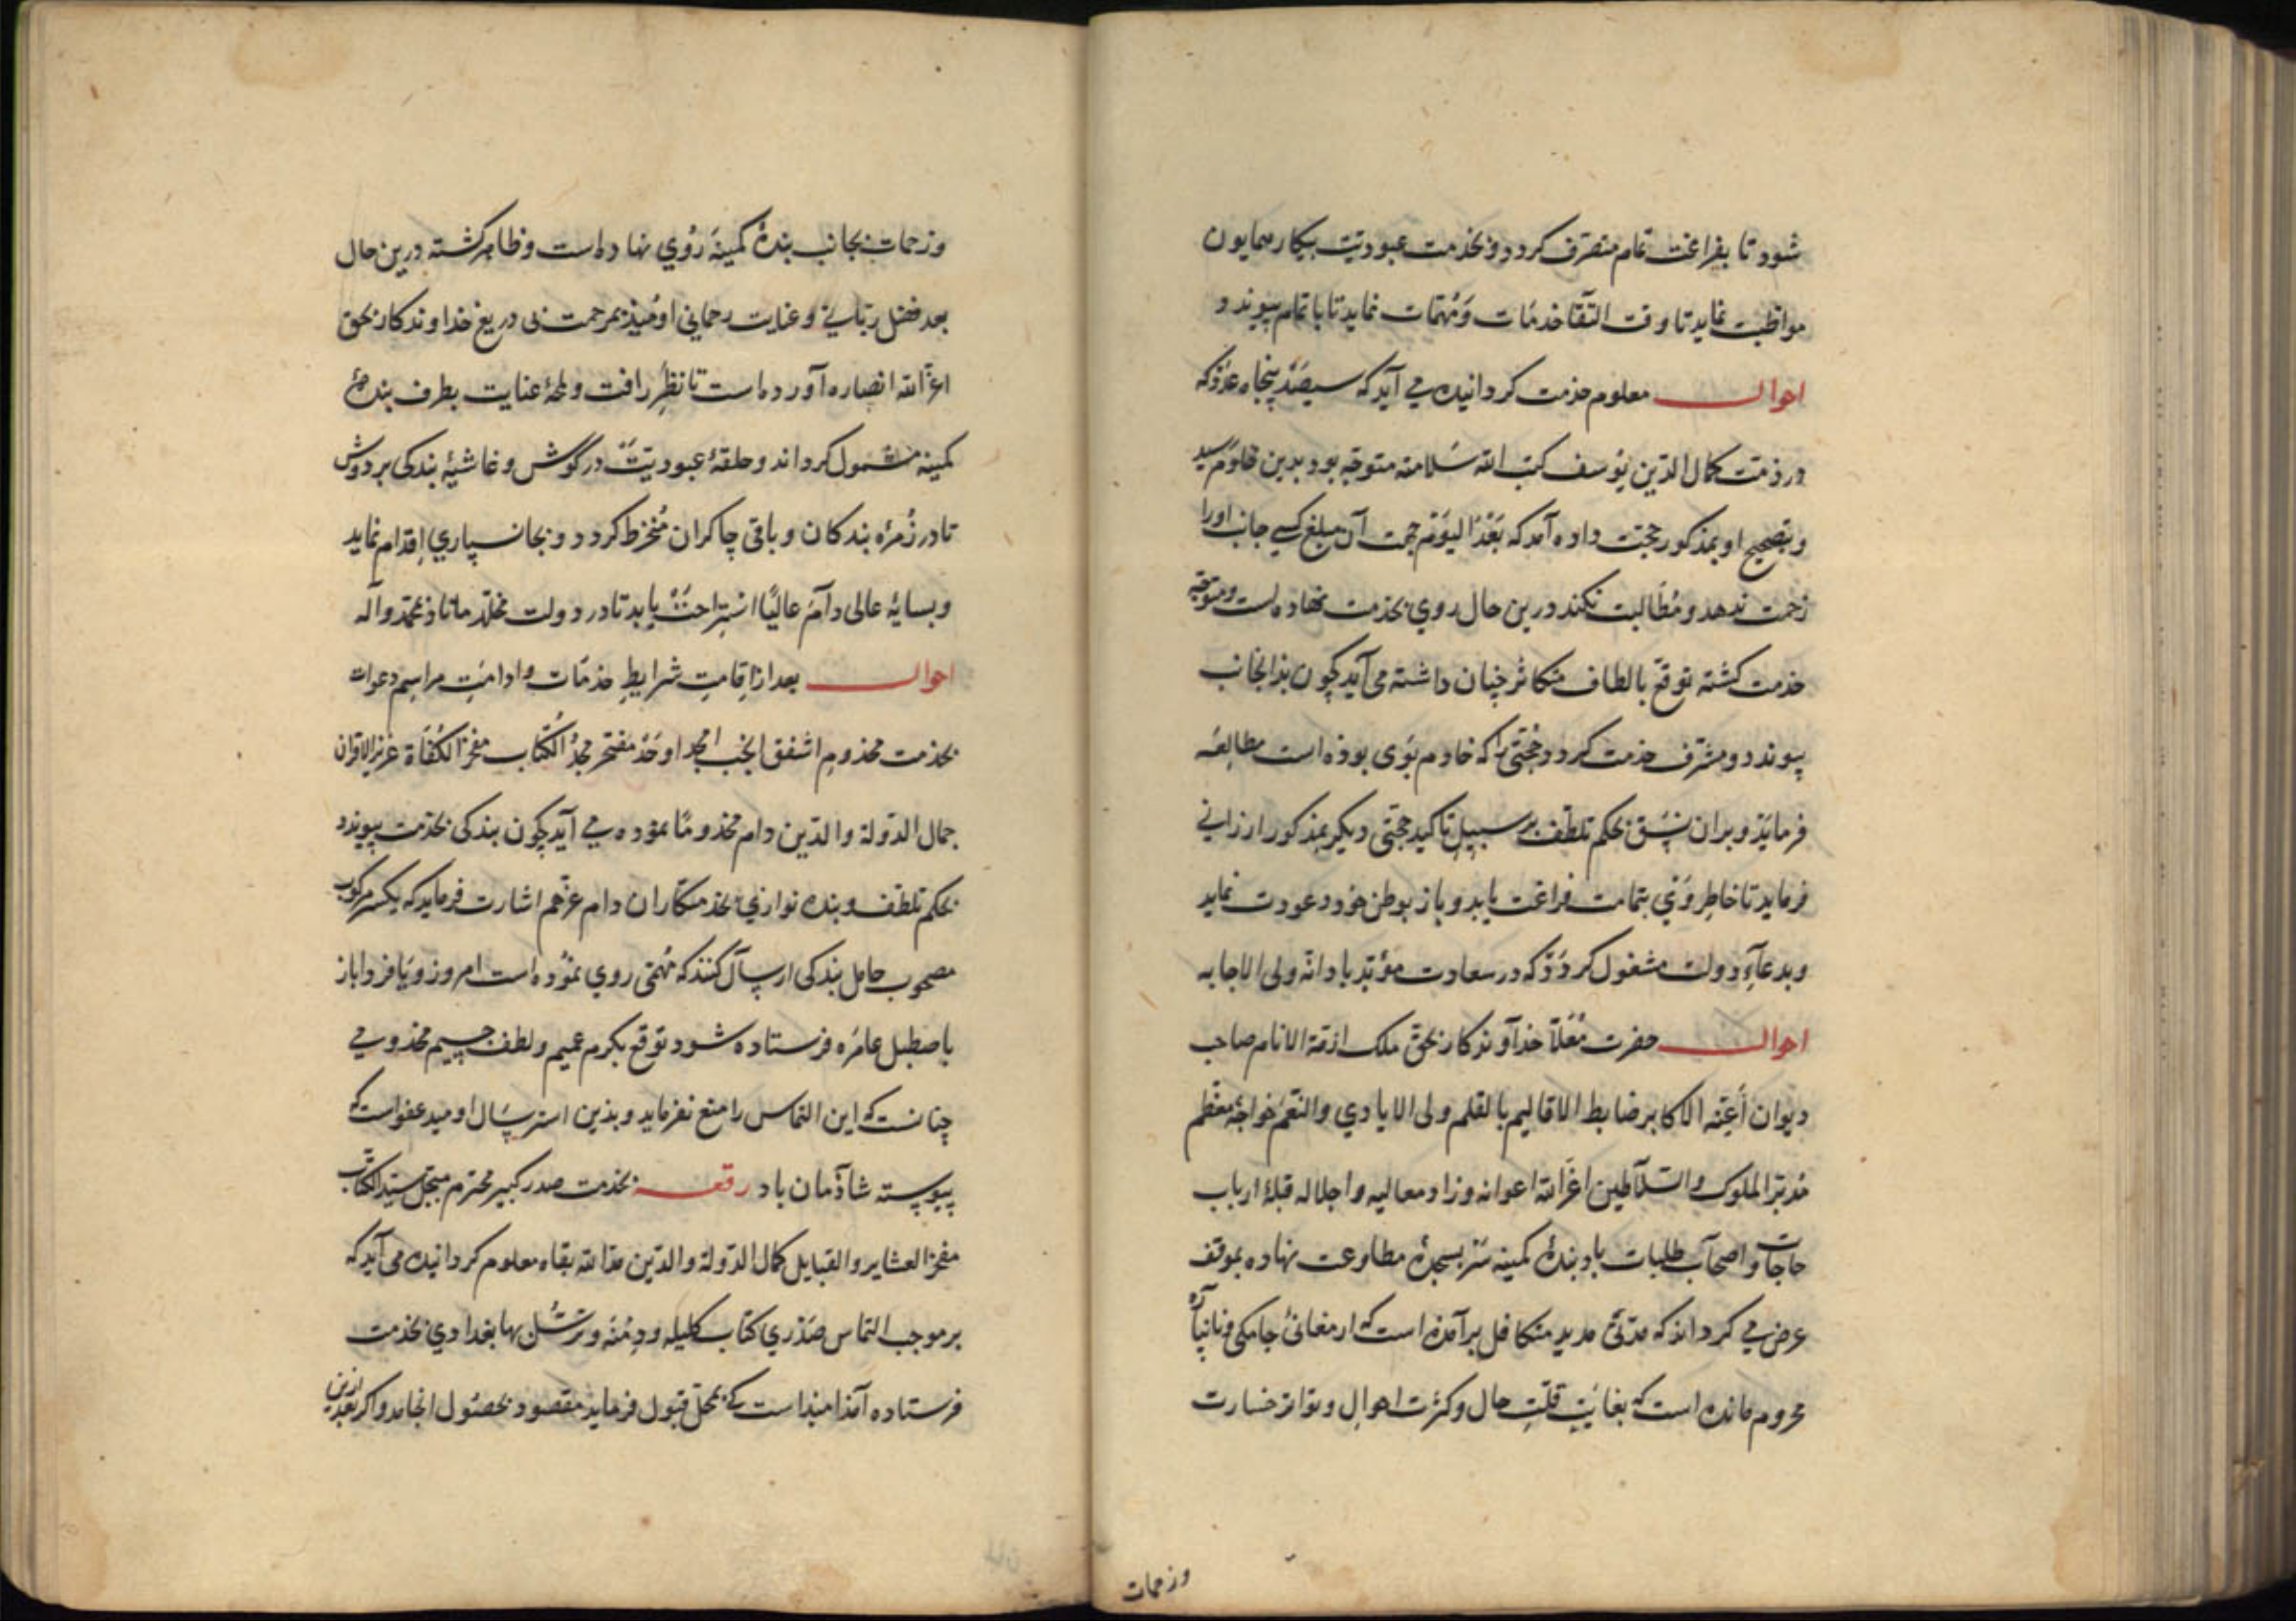 شود تا بفراغت تمام منصرف كردد و بخدمت عبوديّت بيكار همايون
مواظبت نمايد تا وقت التقا خدمات و مُهمّات نمايد تا باتمام پيوندد
احوال معلوم خدمت كردانيده مي آيد كه سيصَد پنجاه عدَد كه
در ذمّت كمال الدّين يُوسف كتب الله سَلامته متوجّه بود بدين خادم رسيد
و بتصحيح او بمذكور حجّت داده آمد كه بَعْدَ اليَوم جهت آن مبلغ كسي جانب او را
زحمت ندهد و مُطَالبت نكند درين حال روي بخدمت نهاده است و متوجّه
خدمت كشته توقّع بالطاف متكاثر چنان داشته مي آيد كه چون بذانجانب
پيوندد و مشرّف خدمت كردد حُجّتي را كه خادم بَوَى بوذه است مطالعَه
فرمايَذ و بران نسَق بحكم تلطّف بر سبيل تاكيد حجّتي ديكر بمذكور ارزاني
فرمايد تا خاطر وَيْ بتمامت فراغت يابد و باز بوطن خود عودت نمايد
و بدعآءِ دولت مشغول كردَدْ كه در سعادت مؤبّد باد انّه ولى الاجابه
احوال حضرت مُعَلّآ خدآوندكار بحق ملك ازمّة الانام صاحب
ديوان أعِنّه الاكابر ضابط الاقاليم بالقلم ولى الايادي والنّعَم خواجهٔ معظّم
مدبّر الملوك والسّلاطين اعَزَّ الله اعوانه و زاد معاليه و اجلاله قبلهٔ ارباب
حاجات و اصحآب طلبات باد بندهٔ كمينه سَر بسجدهٔ مطاوعت نهاده بموقف
عرض مي كرداند كه مدّتيْ مديد متكافل برآمده است كه از معانئ جامكى و نانپاره
محروم مانده است كه بغايَتِ قلّتِ حال و كثرَت اهوالِ و تواتر خسارت
و زحمات
و زحمات بجانب بندهٔ كمينهَ رُوي نهاده است و ظاهر كشته درين حال
بعد فضل ربّاني و عنايت رحماني اوميذ بمرحمت بى دريغ خداوندكار بحق
اعزّ الله انصاره آورده است تا نظرِ رافت و لمحهٔ عنايت بطرف بندهٔ
كمينه مشمول كرداند و حلقهٔ عبوديّتْ در گوش و غاشيهٔ بندكى بر دوش
تا در زُمرهٔ بندكان و باقى چاكران مُنخرط كردد و بجانسپاري اِقدام نمايد
و بسايهٔ عالى دآمَ عاليًا استراحتْ يابد تا در دولت مخلّد ماناذ بمحمّد وآله
احوال بعد از اِقامتِ شرايطِ خدمَات و ادامَتِ مراسِم دعوات
بخدمت مخذوم اشفق انجب امجد اوحَدْ مفتخر مجدُ الكُتّاب مفخر الكُفَاة عَزيز الاقران
جمال الدّولة والدّين دام مخذومًا نموده مي آيد كه چون بندكى بخذمت پيوندد
بحكم تلطّف و بنده نوازي بخذمتكاران دام عزّهم اشارت فرمايد كه يكسَر مركوب
مصحوب حامل بندكى ارسال كنند كه مُهمّى روي نموُده است امروز و يَا فردا باز
باصطبل عامَره فرستاده شود توقّع بكرم عميم و لطف جسيم مخذومي
چنانست كه اين التماس را منع نفرمايد و بذين استرسَال اوميد عفواست كه
پيوسته شاذمان باد رقعه بخدمت صدر كبير محترم مبجّل سيّد الكتّاب
مفخر العشاير والقبايل كمال الدّولة والدّين مدّ الله بقاه معلوم كردانيده مى آيد كه
بر موجب التماس صَدْري كتاب كليله و دِمْنَه و ترسّل بها بغدادي بخذمت
فرستاده آمذ اميذ است كه بمحلّ قبول فرمايد مقصود بحصُول انجامد و اكر بعد ازين